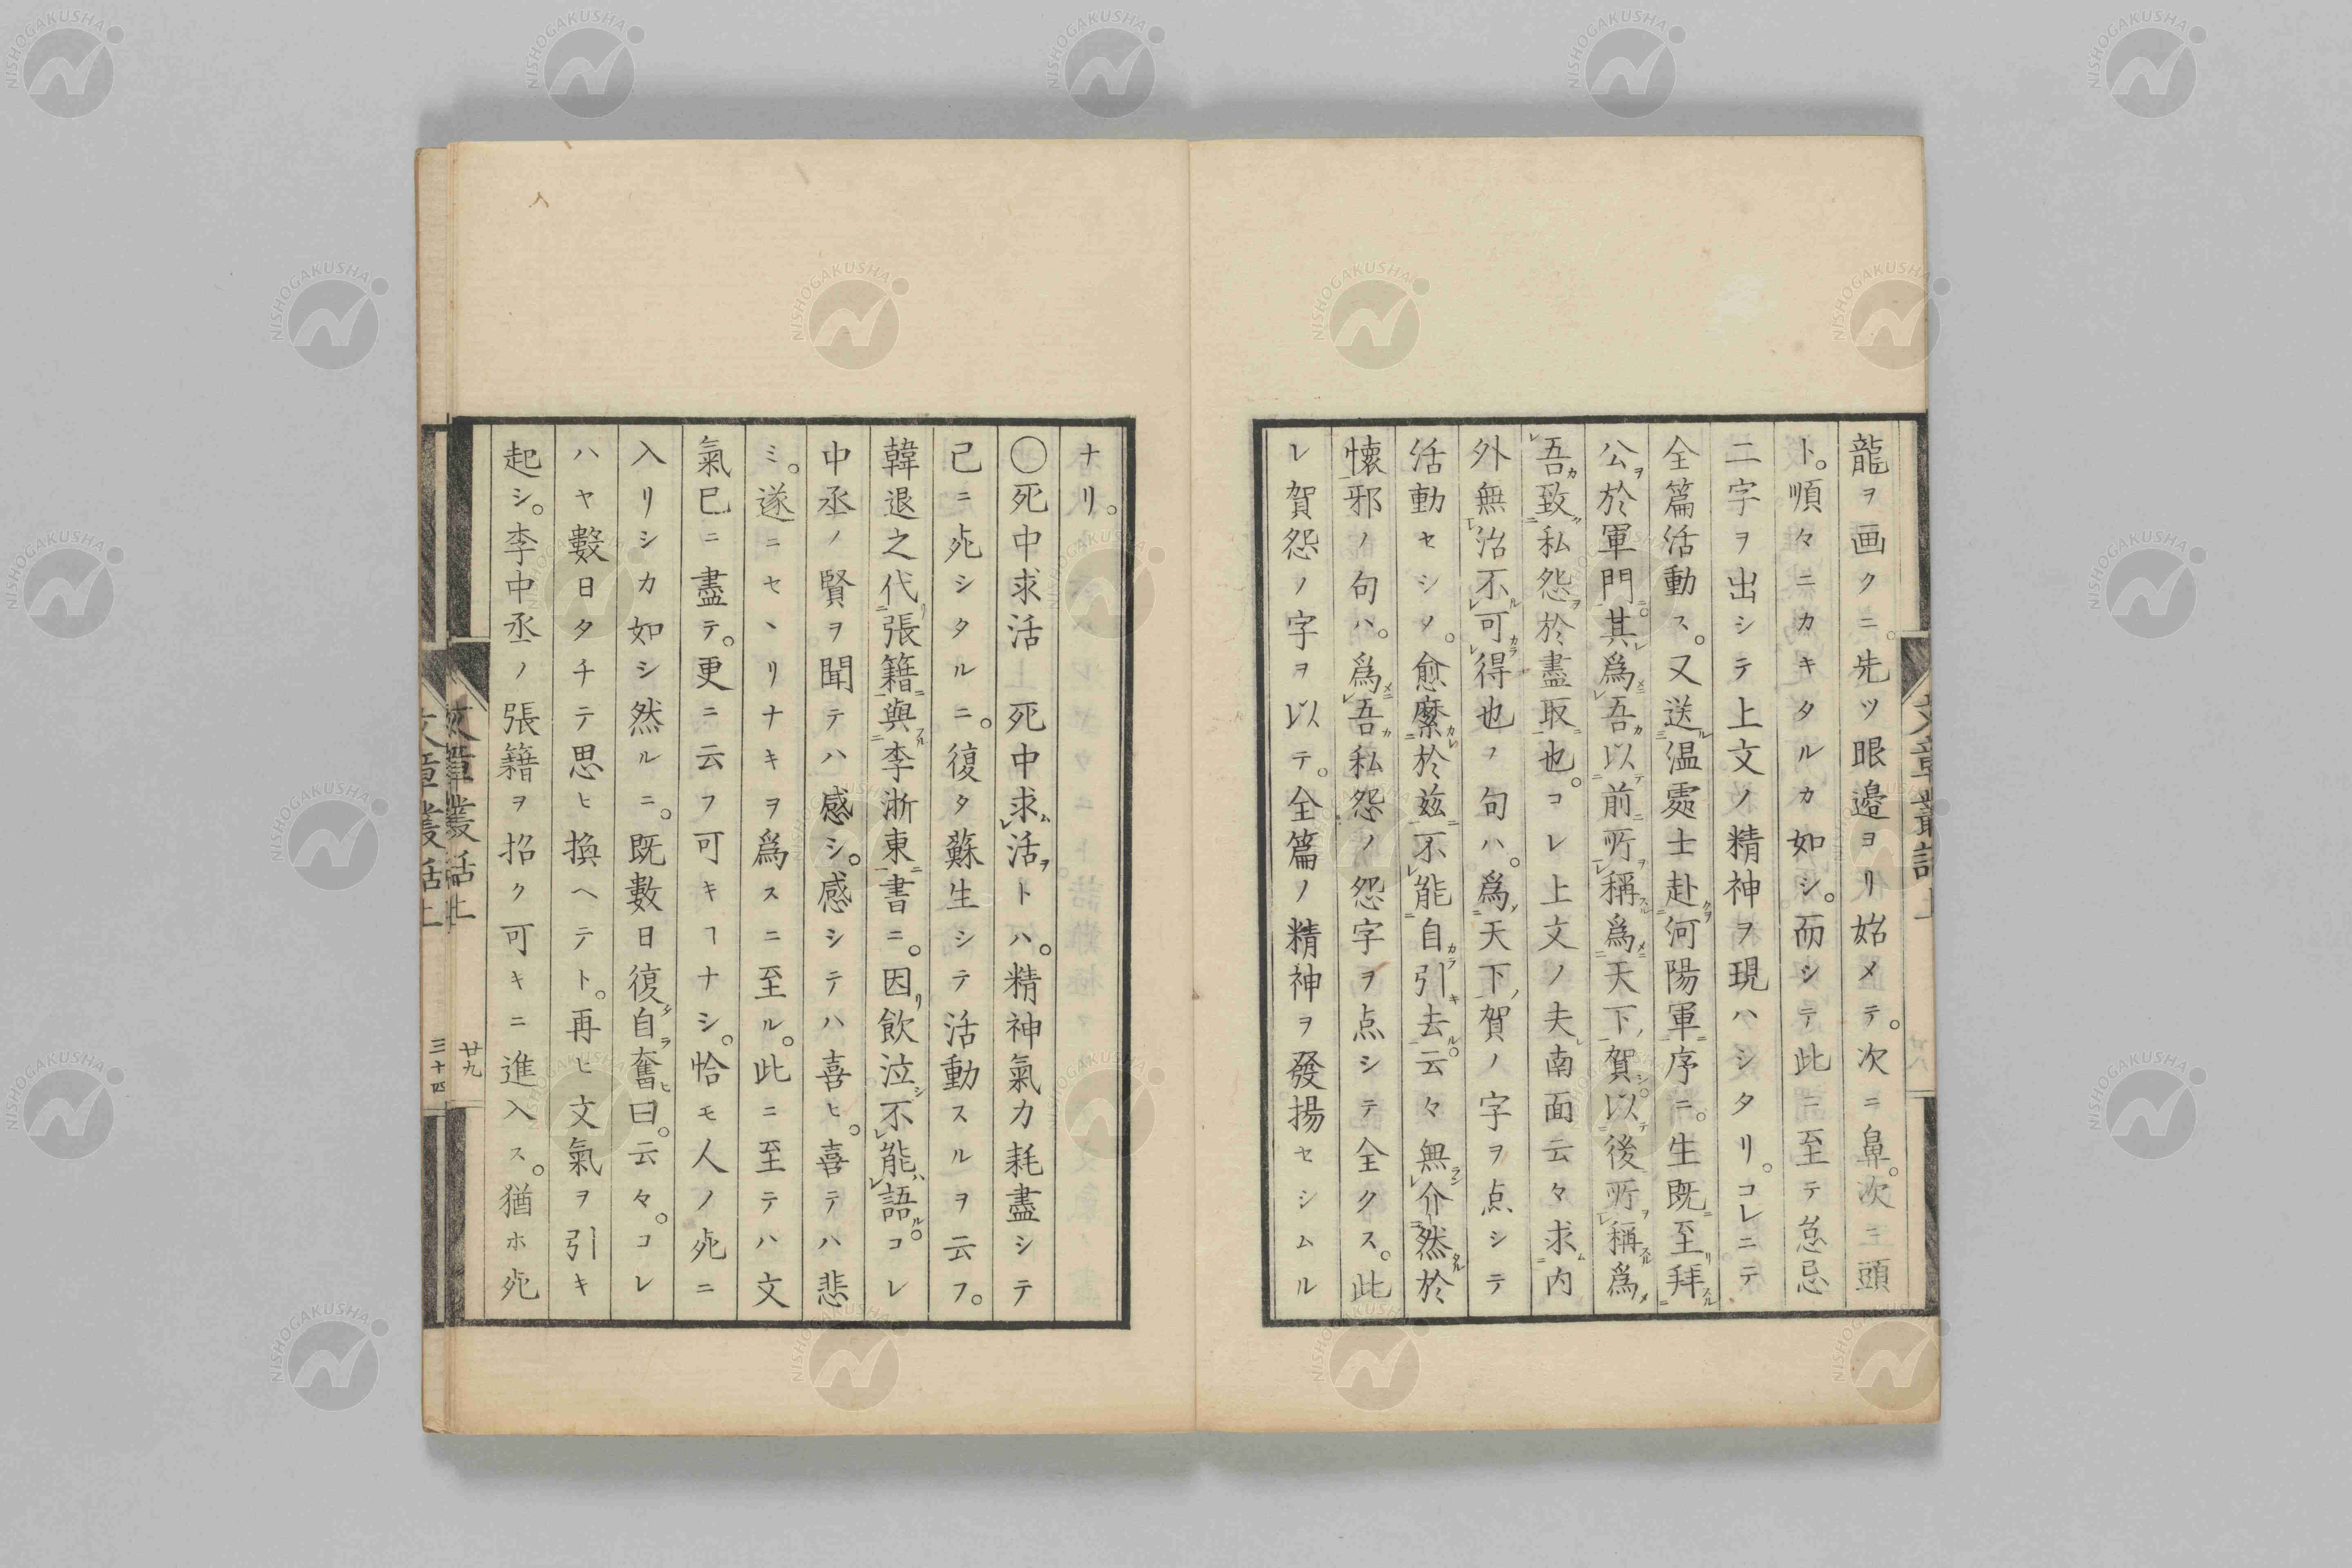 龍ヲ画クニ。先ツ眼邉ヨリ始メテ。次ニ鼻。次ニ頭
ト。順々ニカキタルカ如シ。而シテ此ニ至テ怠忌
二字ヲ出シテ上文ノ精神ヲ現ハシタリ。コレニテ
全篇活動ス。又送温處士赴河陽軍序ニ。生既至拜
公於軍門。其爲吾以前所稱爲天下賀。以後所稱爲
吾致私怨於盡取也。コレ上文ノ夫南面云々求内
外無治不可得也ノ句ハ。爲天下賀ノ字ヲ点シテ
活動セシメ。愈縻於兹不能自引去。云々無介然於
懐邪ノ句ハ。爲吾私怨ノ怨字ヲ点シテ全クス。此
レ賀怨ノ字ヲ以テ。全篇ノ精神ヲ發揚セシムル
ナリ。
〇死中求活 死中求活トハ。精神氣力耗盡シテ
已ニ死シタルニ。復タ蘇生シテ活動スルヲ云フ。
韓退之代張籍與李浙東書ニ。因飲泣不能語。コレ
中丞ノ賢ヲ聞テハ感シ。感シテハ喜ヒ。喜テハ悲
ミ。遂ニセヽリナキヲ爲スニ至ル。此ニ至テハ文
氣已ニ盡テ。更ニ云フ可キヿナシ。恰モ人ノ死ニ
入リシカ如シ然ルニ。既數日復自奮曰。云々。コレ
ハヤ數日タチテ思ヒ換ヘテト。再ヒ文氣ヲ引キ
起シ。李中丞ノ張籍ヲ招ク可キニ進入ス。猶ホ死
文章叢話上
廿九
文章叢話上
三十四
NISHOGAKUSHA